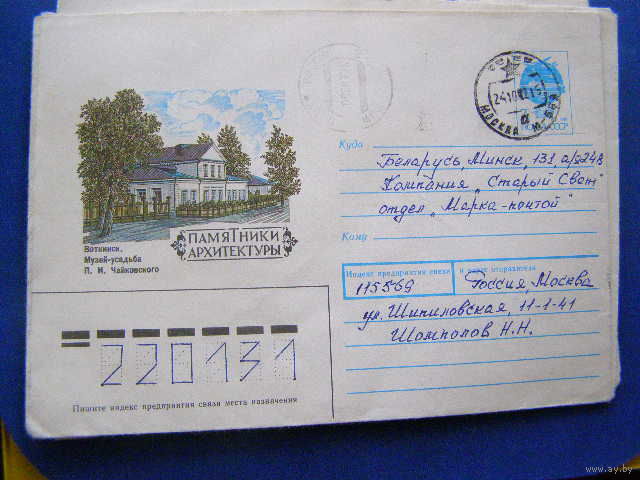 МОСКВА
Куда
Беларусь, Минск, 131, а/я 248
Компания "Старый Свет"
отдел "Марка-почтой"
Кому
ПАМЯТНИКИ
АРХИТЕКТУРЫ
Воткинск.
Музей-усадьба
П. И. Чайковского
Индекс предприятия связи и адрес отправителя
115569 Россия, Москва
ул. Шипиловская, 11-1-41
Шомполов Н.Н.
220131
Пишите индекс предприятия связи места назначения
www.ay.by